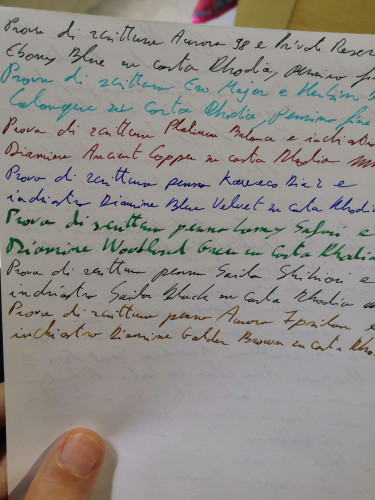 Prova di scrittura Aurora 98 e Private Reser
Ebony Blue su carta Rhodia, pennino fi
Prova di scrittura Eno Major e Herbin
su carta Rhodia, pennino fine
Prova di scrittura Platinum Balance e inchiostro
Diamine Ancient Copper su carta Rhodia
Prova di scrittura penna Kaweco Dia 2 e
inchiostro Diamine Blue Velvet su carta Rhodia
Prova di scrittura penna Lamy Safari e
Diamine Woodland Green su carta Rhodia
Prova di scrittura penna Sailor Shikiori e
inchiostro Sailor Black su carta Rhodia
Prova di scrittura penna Aurora Ipsilon e
inchiostro Diamine Golden Brown su carta Rho